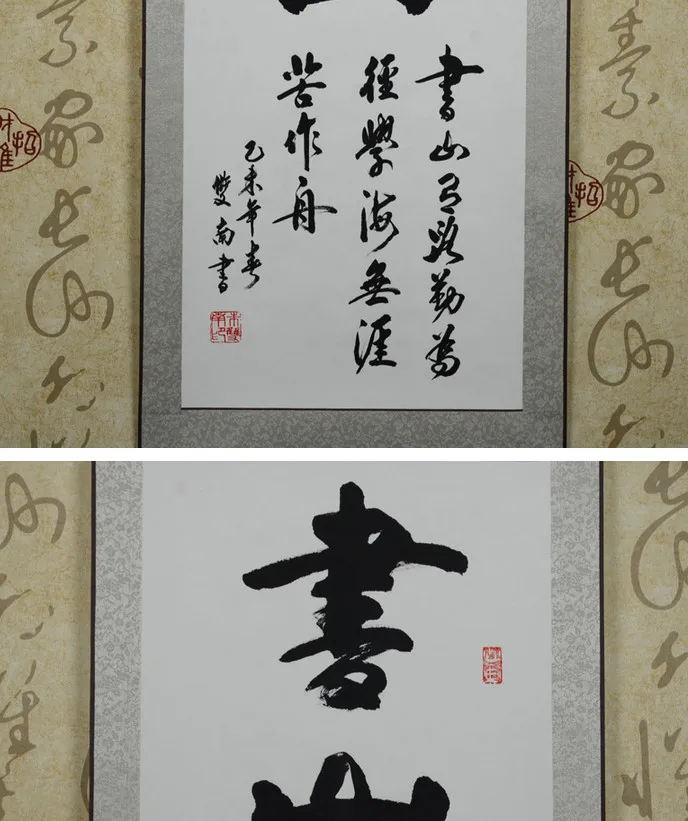 書山有路勤為
徑學海無涯
苦作舟
乙未年春
雙南書
書
山